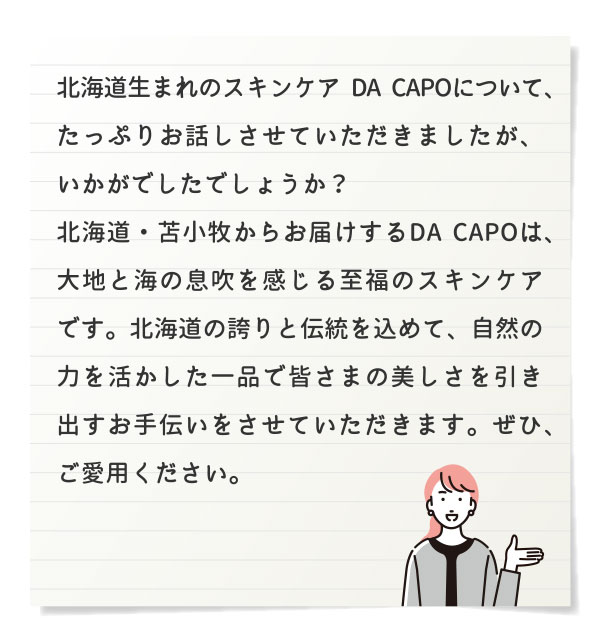 北海道生まれのスキンケア DA CAPOについて、
たっぷりお話しさせていただきましたが、
いかがでしたでしょうか？
北海道・苫小牧からお届けするDA CAPOは、
大地と海の息吹を感じる至福のスキンケア
です。北海道の誇りと伝統を込めて、自然の
力を活かした一品で皆さまの美しさを引き
出すお手伝いをさせていただきます。ぜひ、
ご愛用ください。